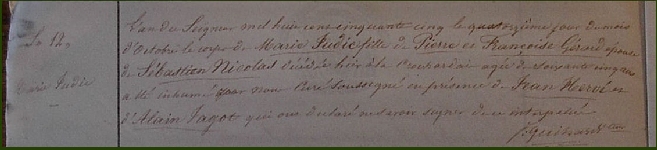 No 12.
Marie Judic
L'an du Seigneur mil huit cent cinquante cinq le quatorzième jour du mois
d'Octobre le corps de Marie Judic fille de Pierre et Françoise Gérard épouse
de Sébastien Nicolas décédée hier à la agée de soixante cinq ans
a été inhumé par nous Curé Soussigné en présence de Jean Hervé et
d'Alain Jagot qui ont déclaré ne savoir signer de ce interpellés